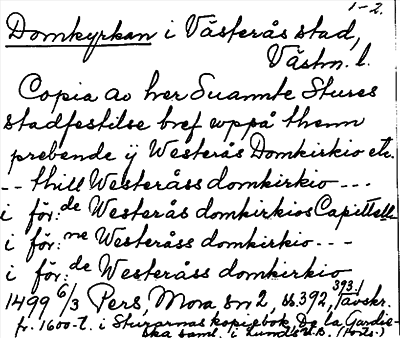 1-2.
Domkyrkan i Västerås stad,
Västm. l.
Copia av her Suannte Stures
stadfestilse bref uppå thenn
prebende ÿ Westerås Domkirkio etc.
-- thill Westeråss domkirkio ---
i för:de Westerås domkirkios Capittell
i för:ne Westeråss domkirkio ---
i för:de Westeråss domkirkio
1499 6/3 Pers, Mora sn 2, ss. 392, 393.) Avskr.
fr. 1600-t. i Sturarnas kopiebok, De la Gardie-
ska saml. i Lunds U.B. (Forts.)